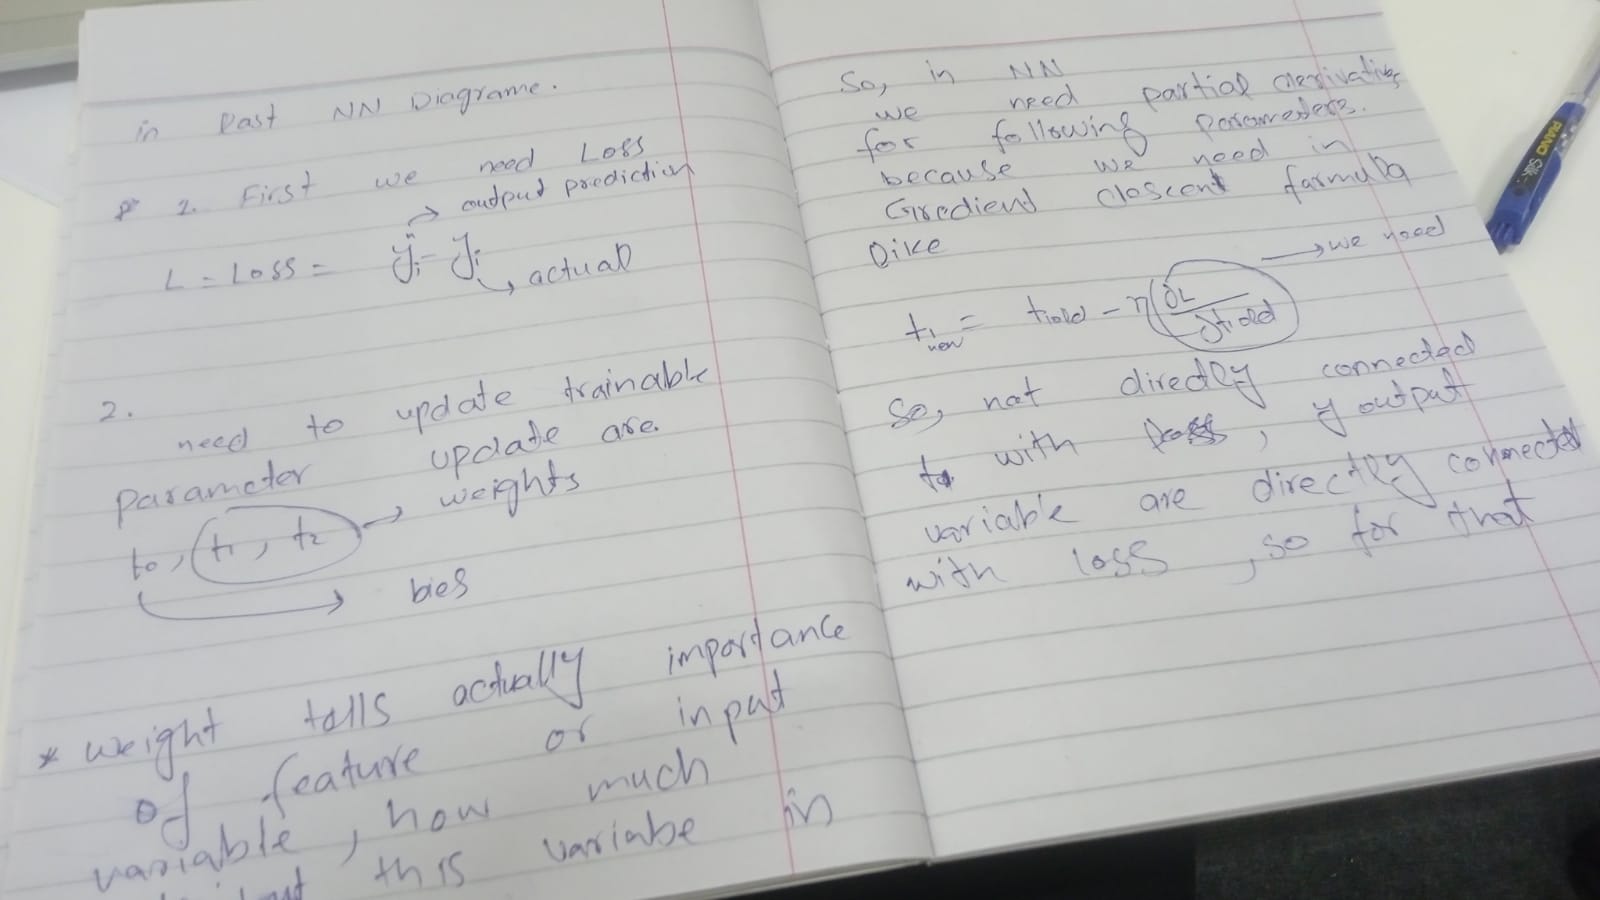 in Past NN Diagrame.
1. First we need Loss
→ output prediction
L = Loss = ŷi - yi
→ actual
2.
need to update trainable
parameter update are.
to, t1, t2 → weights
bies
* weight tells actually importance
of feature or input
variable, how much
this variabe in
So, in NN
we need partial derivative
for following parameters.
because we need in
Gredient descent formula
like
→ we need
t1 new = t1old - η ∂L/∂t1old
So, not directly connected
with loss, y output
variable are directly connected
with loss, so for that
PIANO